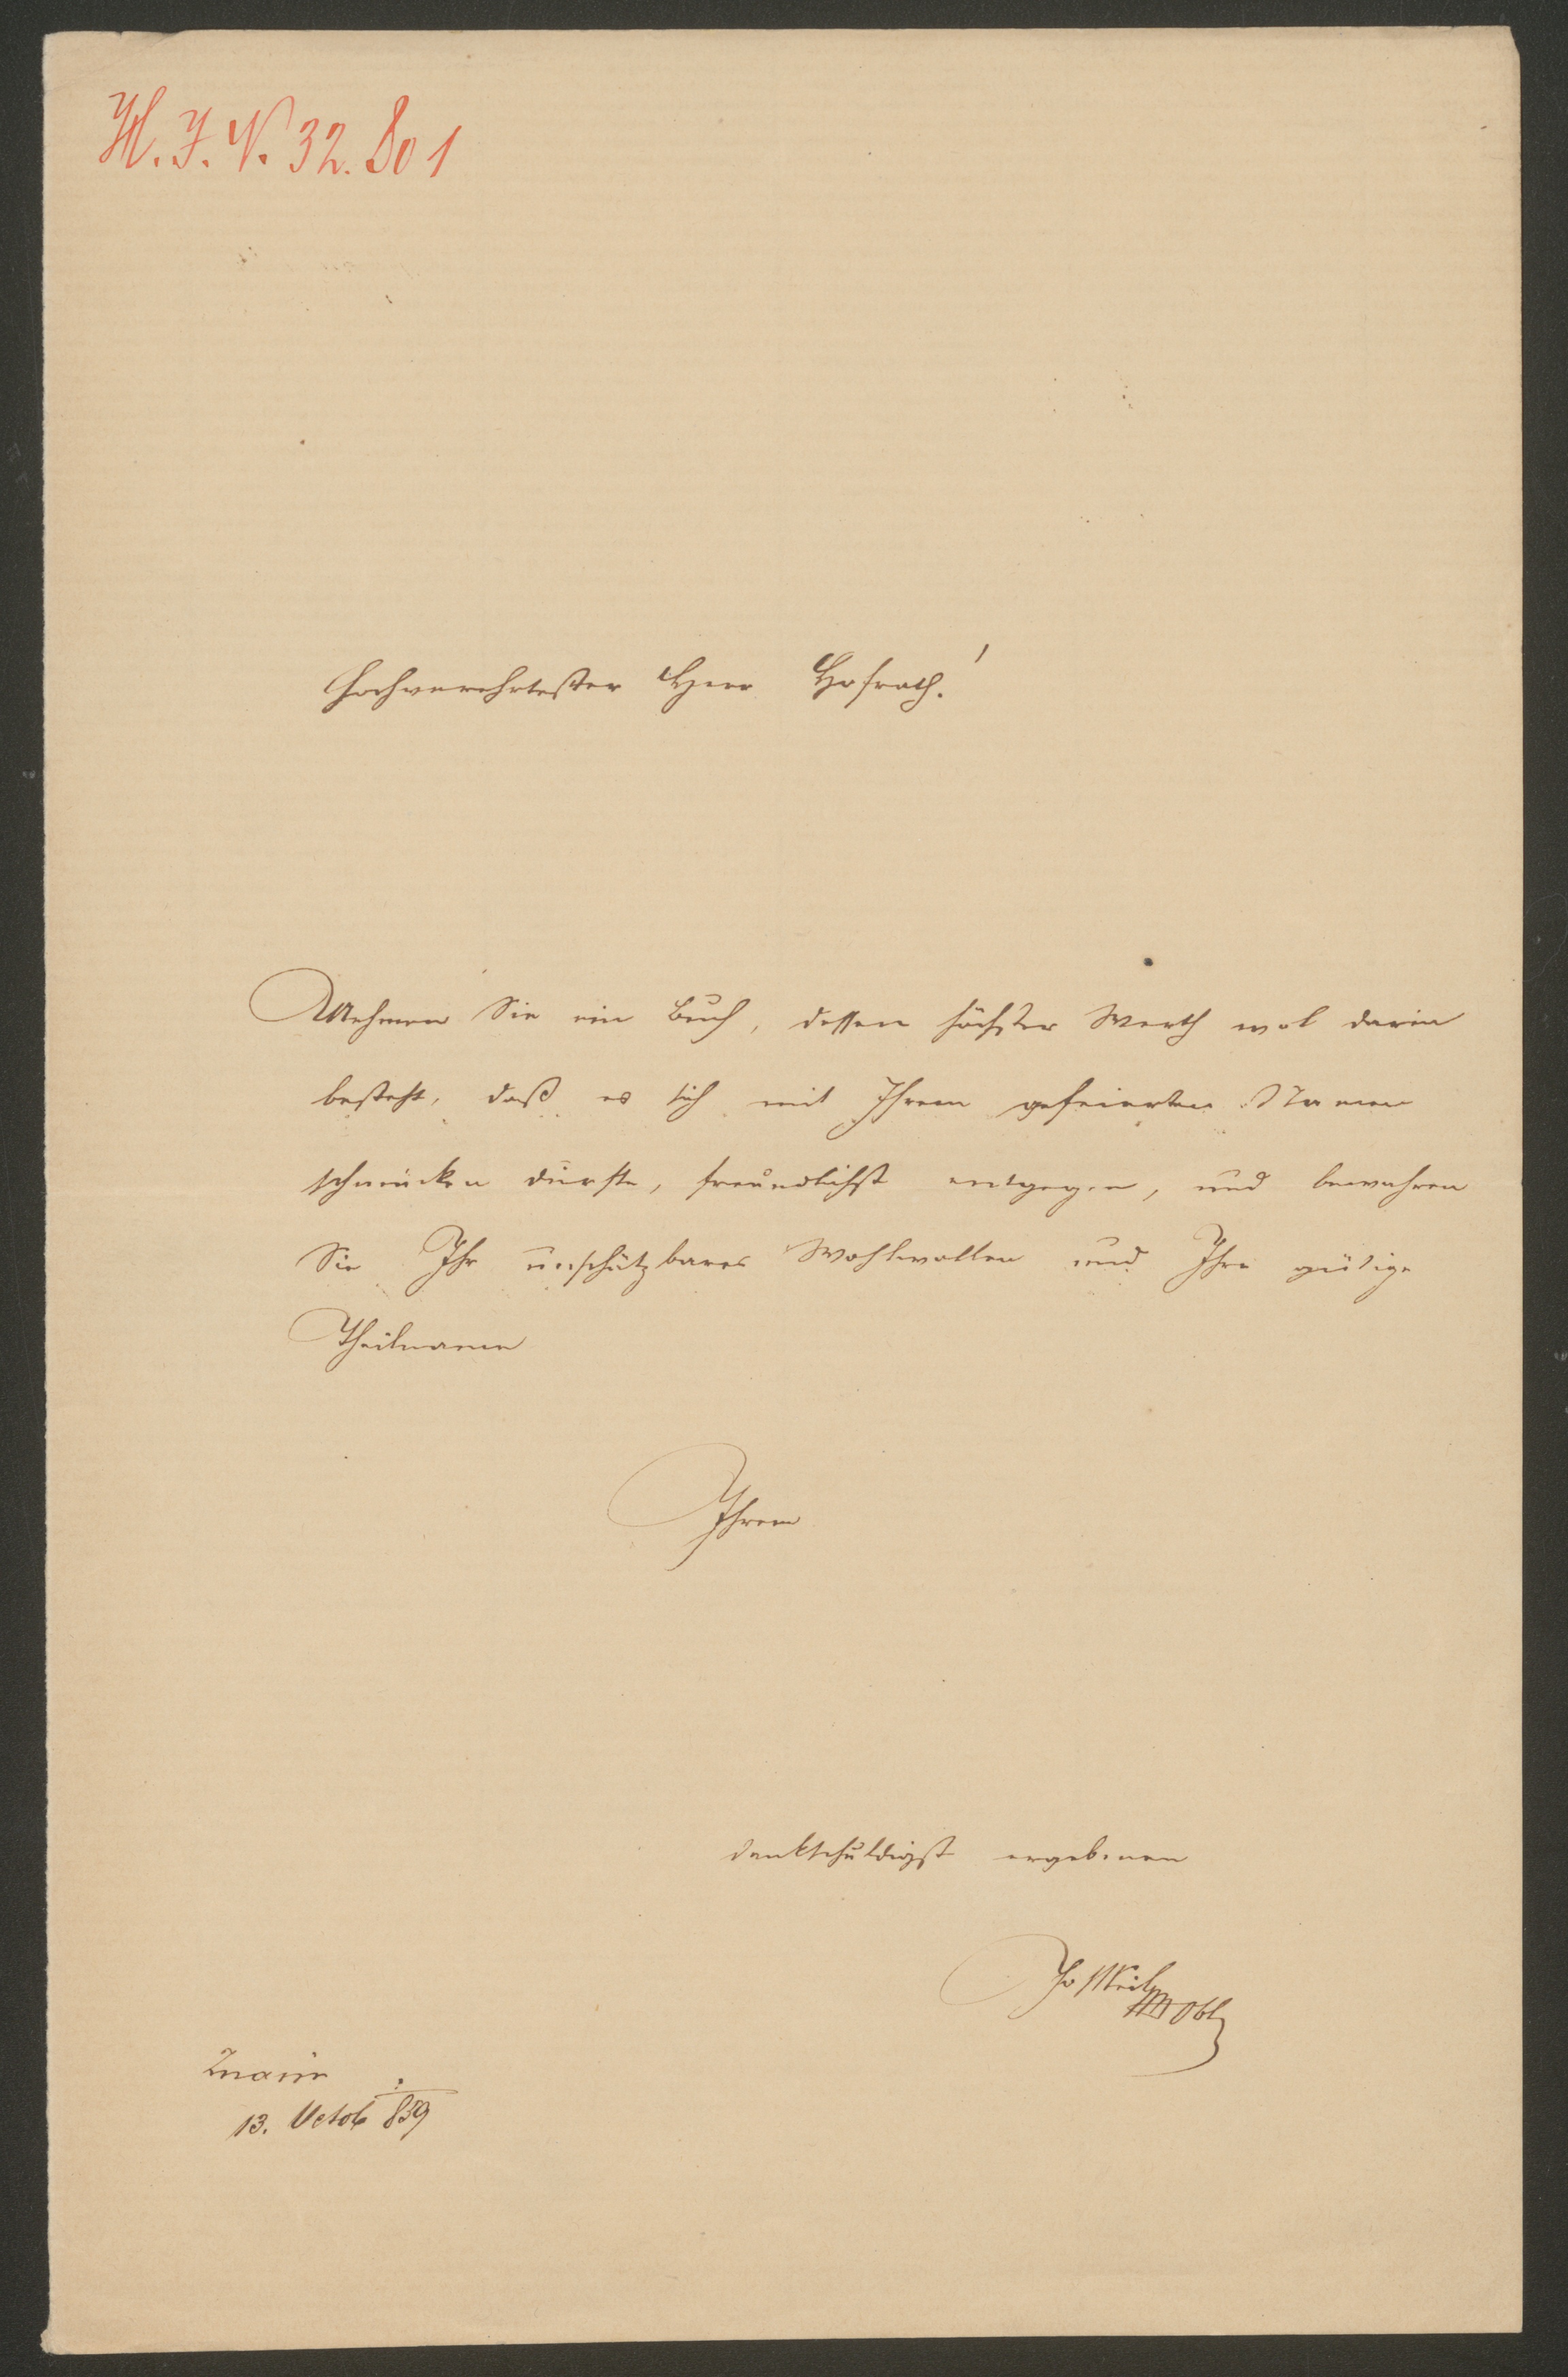 H. I. N. 32.801
Hochverehrtester Herr Hofrath!
Nehmen Sie ein Buch, dessen höchster Werth wol darin
besteht, daß es sich mit Ihrem gefeierten Namen
schmücken durfte, freundlichst entgegen, und bewahren
Sie Ihr unschätzbares Wohlwollen und Ihre gütige
Theilname
Ihrem
dankschuldigst ergebenen
Znaim
13. Octob 859